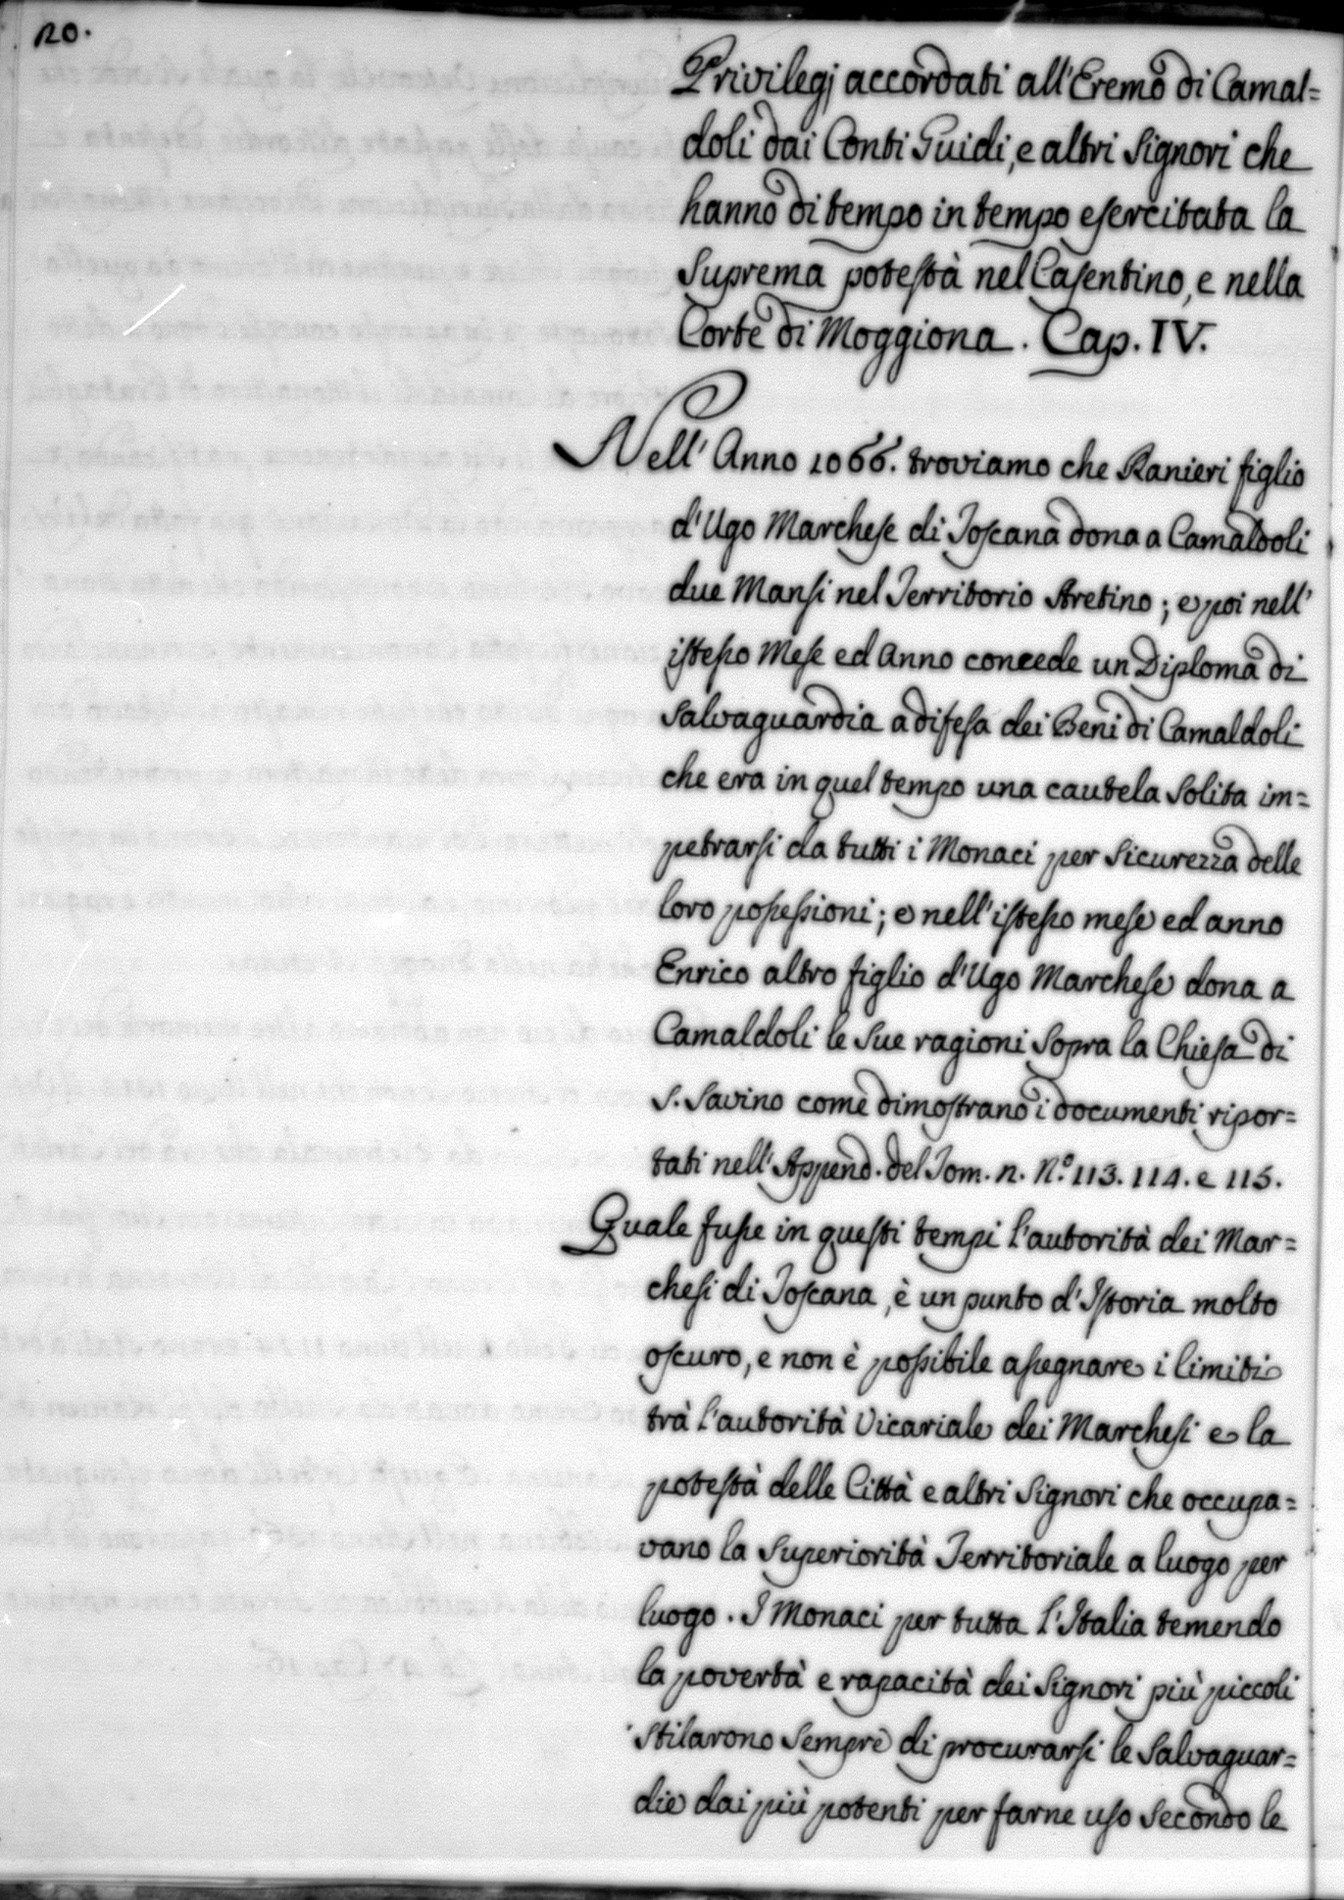 20.
Privilegj accordati all'Eremo di Camal=
doli dai Conti Guidi, e altri Signori che
hanno di tempo in tempo esercitata la
Suprema potestà nel Casentino, e nella
Corte di Moggiona. Cap. IV.
Nell' Anno 1066. troviamo che Ranieri figlio
d'Ugo Marchese di Toscana dona a Camaldoli
due Mansi nel Territorio Aretino; e poi nell'
istesso Mese ed Anno concede un Diploma di
Salvaguardia a difesa dei Beni di Camaldoli
che era in quel tempo una cautela Solita im=
petrarsi da tutti i Monaci per Sicurezza delle
loro possessioni; e nell'istesso mese ed anno
Enrico altro figlio d'Ugo Marchese dona a
Camaldoli le Sue ragioni Sopra la Chiesa di
S. Savino come dimostrano i documenti ripor=
tati nell'Append. del Tom. n. N.º 113. 114. e 115.
Quale fusse in questi tempi l'autorità dei Mar=
chesi di Toscana, è un punto d'Istoria molto
oscuro, e non è possibile assegnare i limiti
trà l'autorità Vicariale dei Marchesi e la
potestà delle Città e altri Signori che occupa=
vano la Superiorità Territoriale a luogo per
luogo. I Monaci per tutta l'Italia temendo
la povertà e rapacità dei Signori più piccoli
stilarono Sempre di procurarsi le Salvaguar=
die dai più potenti per farne uso Secondo le